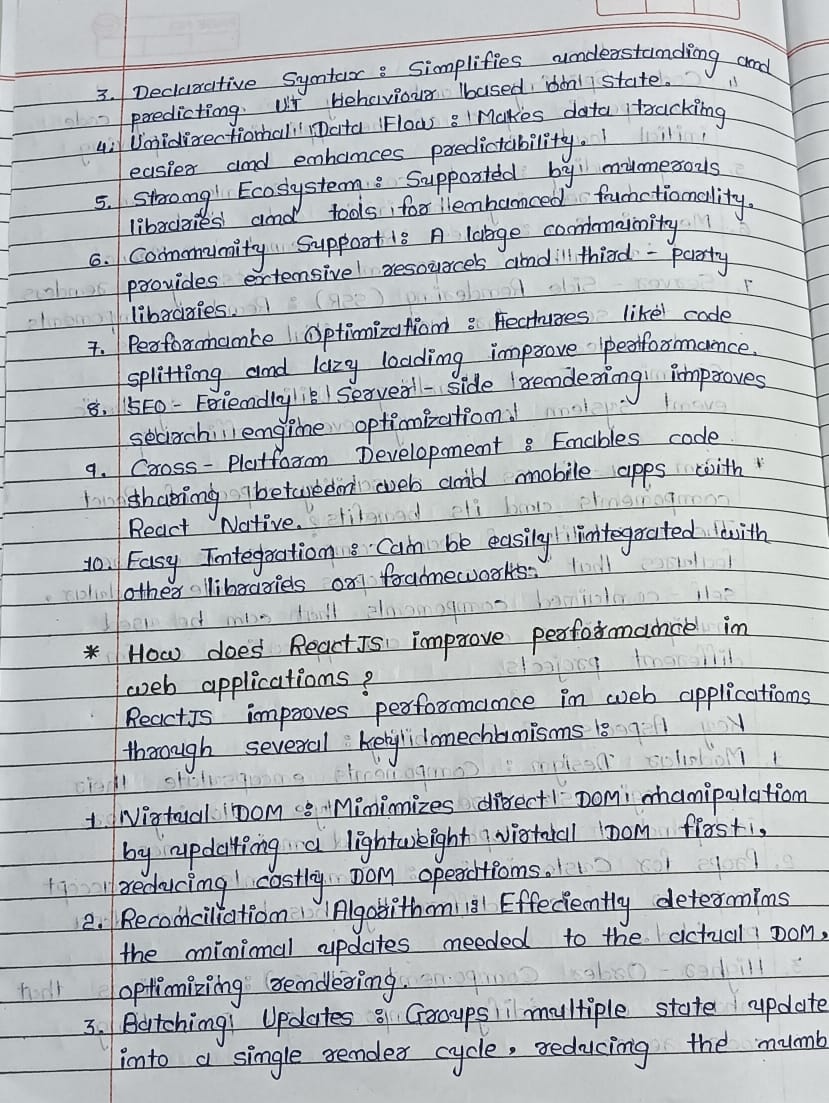 3. Declarative Syntax : Simplifies understanding and
predicting UI Behaviour based on state.
4. Unidirectional Data Flow : Makes data tracking
easier and enhances predictability.
5. Strong Ecosystem : Supported by numerous
libraries and tools for enhanced functionality.
6. Community Support : A large community
provides extensive resources and third - party
libraries.
7. Performance Optimization : Features like code
splitting and lazy loading improve performance.
8. SEO - Friendly : Server - side rendering improves
search engine optimization.
9. Cross - Platform Development : Enables code
sharing between web and mobile apps with
React Native.
10. Easy Integration : Can be easily integrated with
other libraries or frameworks.
* How does React JS improve performance in
web applications ?
React JS improves performance in web applications
through several key mechanisms :
1. Virtual DOM : Minimizes direct DOM manipulation
by updating a lightweight virtual DOM first,
reducing costly DOM operations.
2. Reconciliation Algorithm : Effeciently determins
the minimal updates needed to the actual DOM,
optimizing rendering.
3. Batching Updates : Groups multiple state update
into a single render cycle, reducing the numb